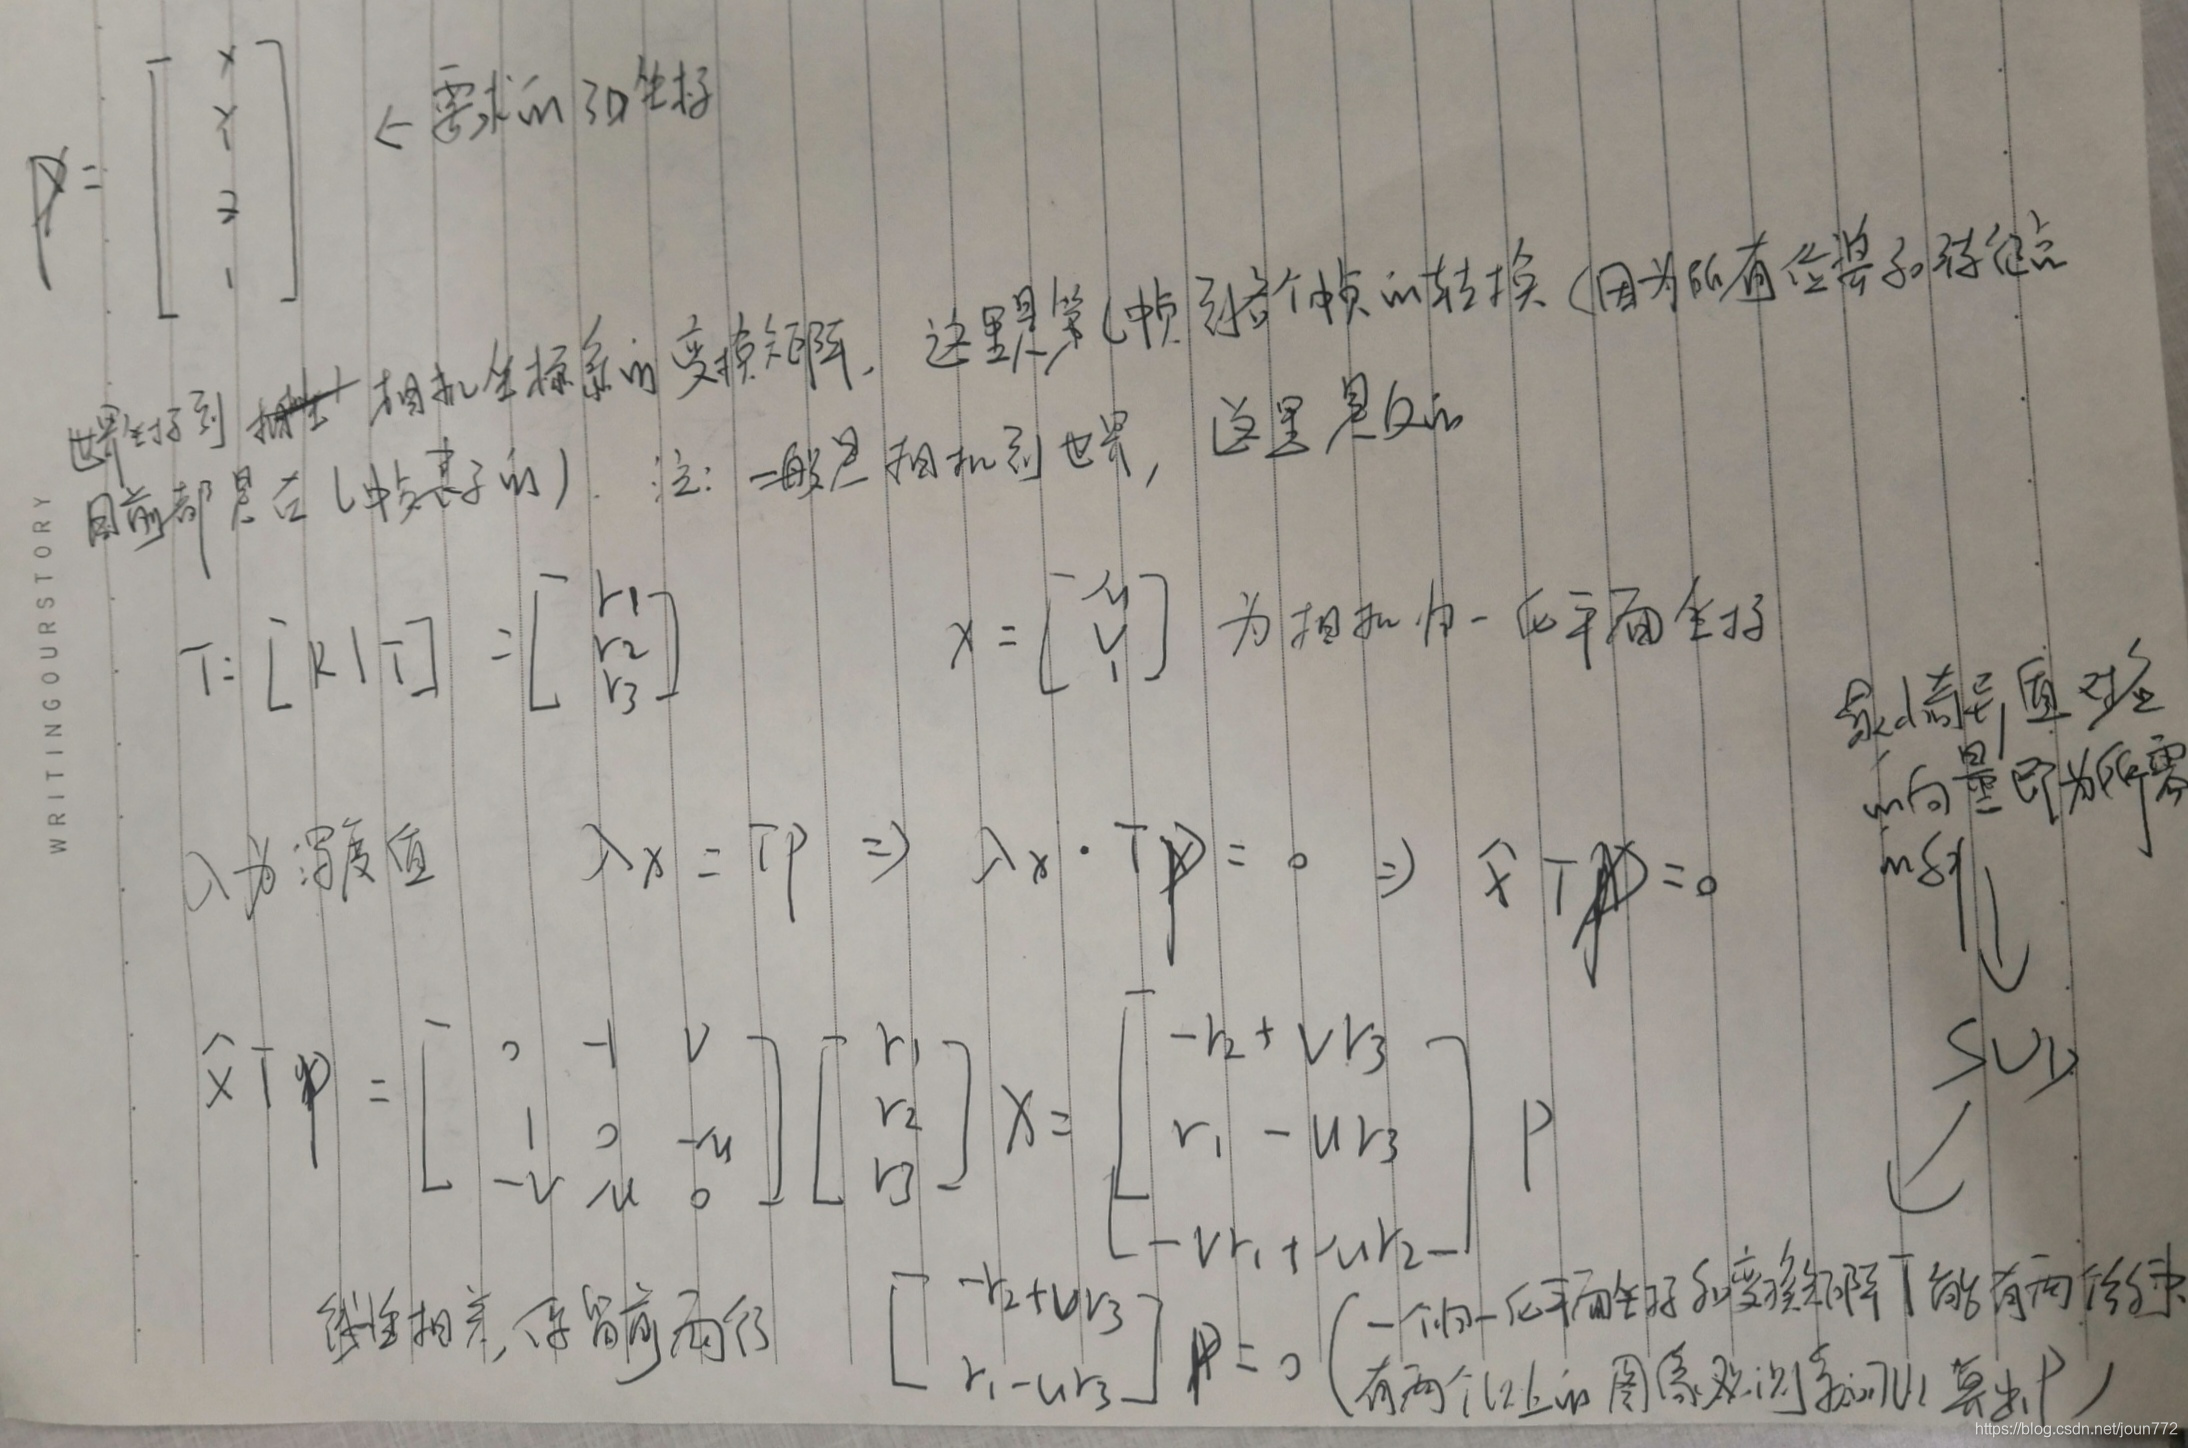 P = [ X Y Z 1 ] ← 需求的3D坐标
世界坐标到 相机坐标系的变换矩阵. 这里是第l帧到各个帧的转换 (因为所有位姿和特征点
目前都是在l帧基础的). 注: 一般是相机到世界, 这里是反的
T = [R | T] = [ r1 r2 r3 ] x = [ u v 1 ] 为相机归一化平面坐标
λ为深度值 λx = TP ⇒ λx · TP = 0 ⇒ x̂ T P = 0
最小奇异值对应
的向量即为所需
的
SVD
x̂ T P = [ 0 -1 v ; 1 0 -u ; -v u 0 ] [ r1 r2 r3 ] X = [ -r2 + vr3 ; r1 - ur3 ; -vr1 + ur2 ] P
线性相关, 保留前两行 [ -r2+vr3 ; r1-ur3 ] P = 0 (一个归一化平面坐标和变换矩阵T能有两个约束
有两个以上的图像观测就可以算出P)
WRITINGOURSTORY
https://blog.csdn.net/joun772